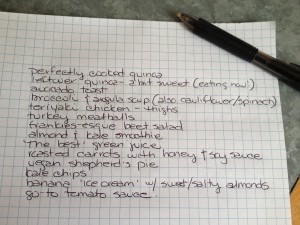 perfectly cooked quinoa
leftover quinoa - a bit sweet (eating now!)
avocado toast
broccoli & arugula soup (also cauliflower/spinach)
teriyaki chicken - thighs
turkey meatballs
frankies-esque beet salad
almond & kale smoothie
'The best' green juice
roasted carrots with honey & soy sauce
vegan shepherd's pie
kale chips
banana 'ice cream' w/ sweet/salty almonds
go-to tomato sauce